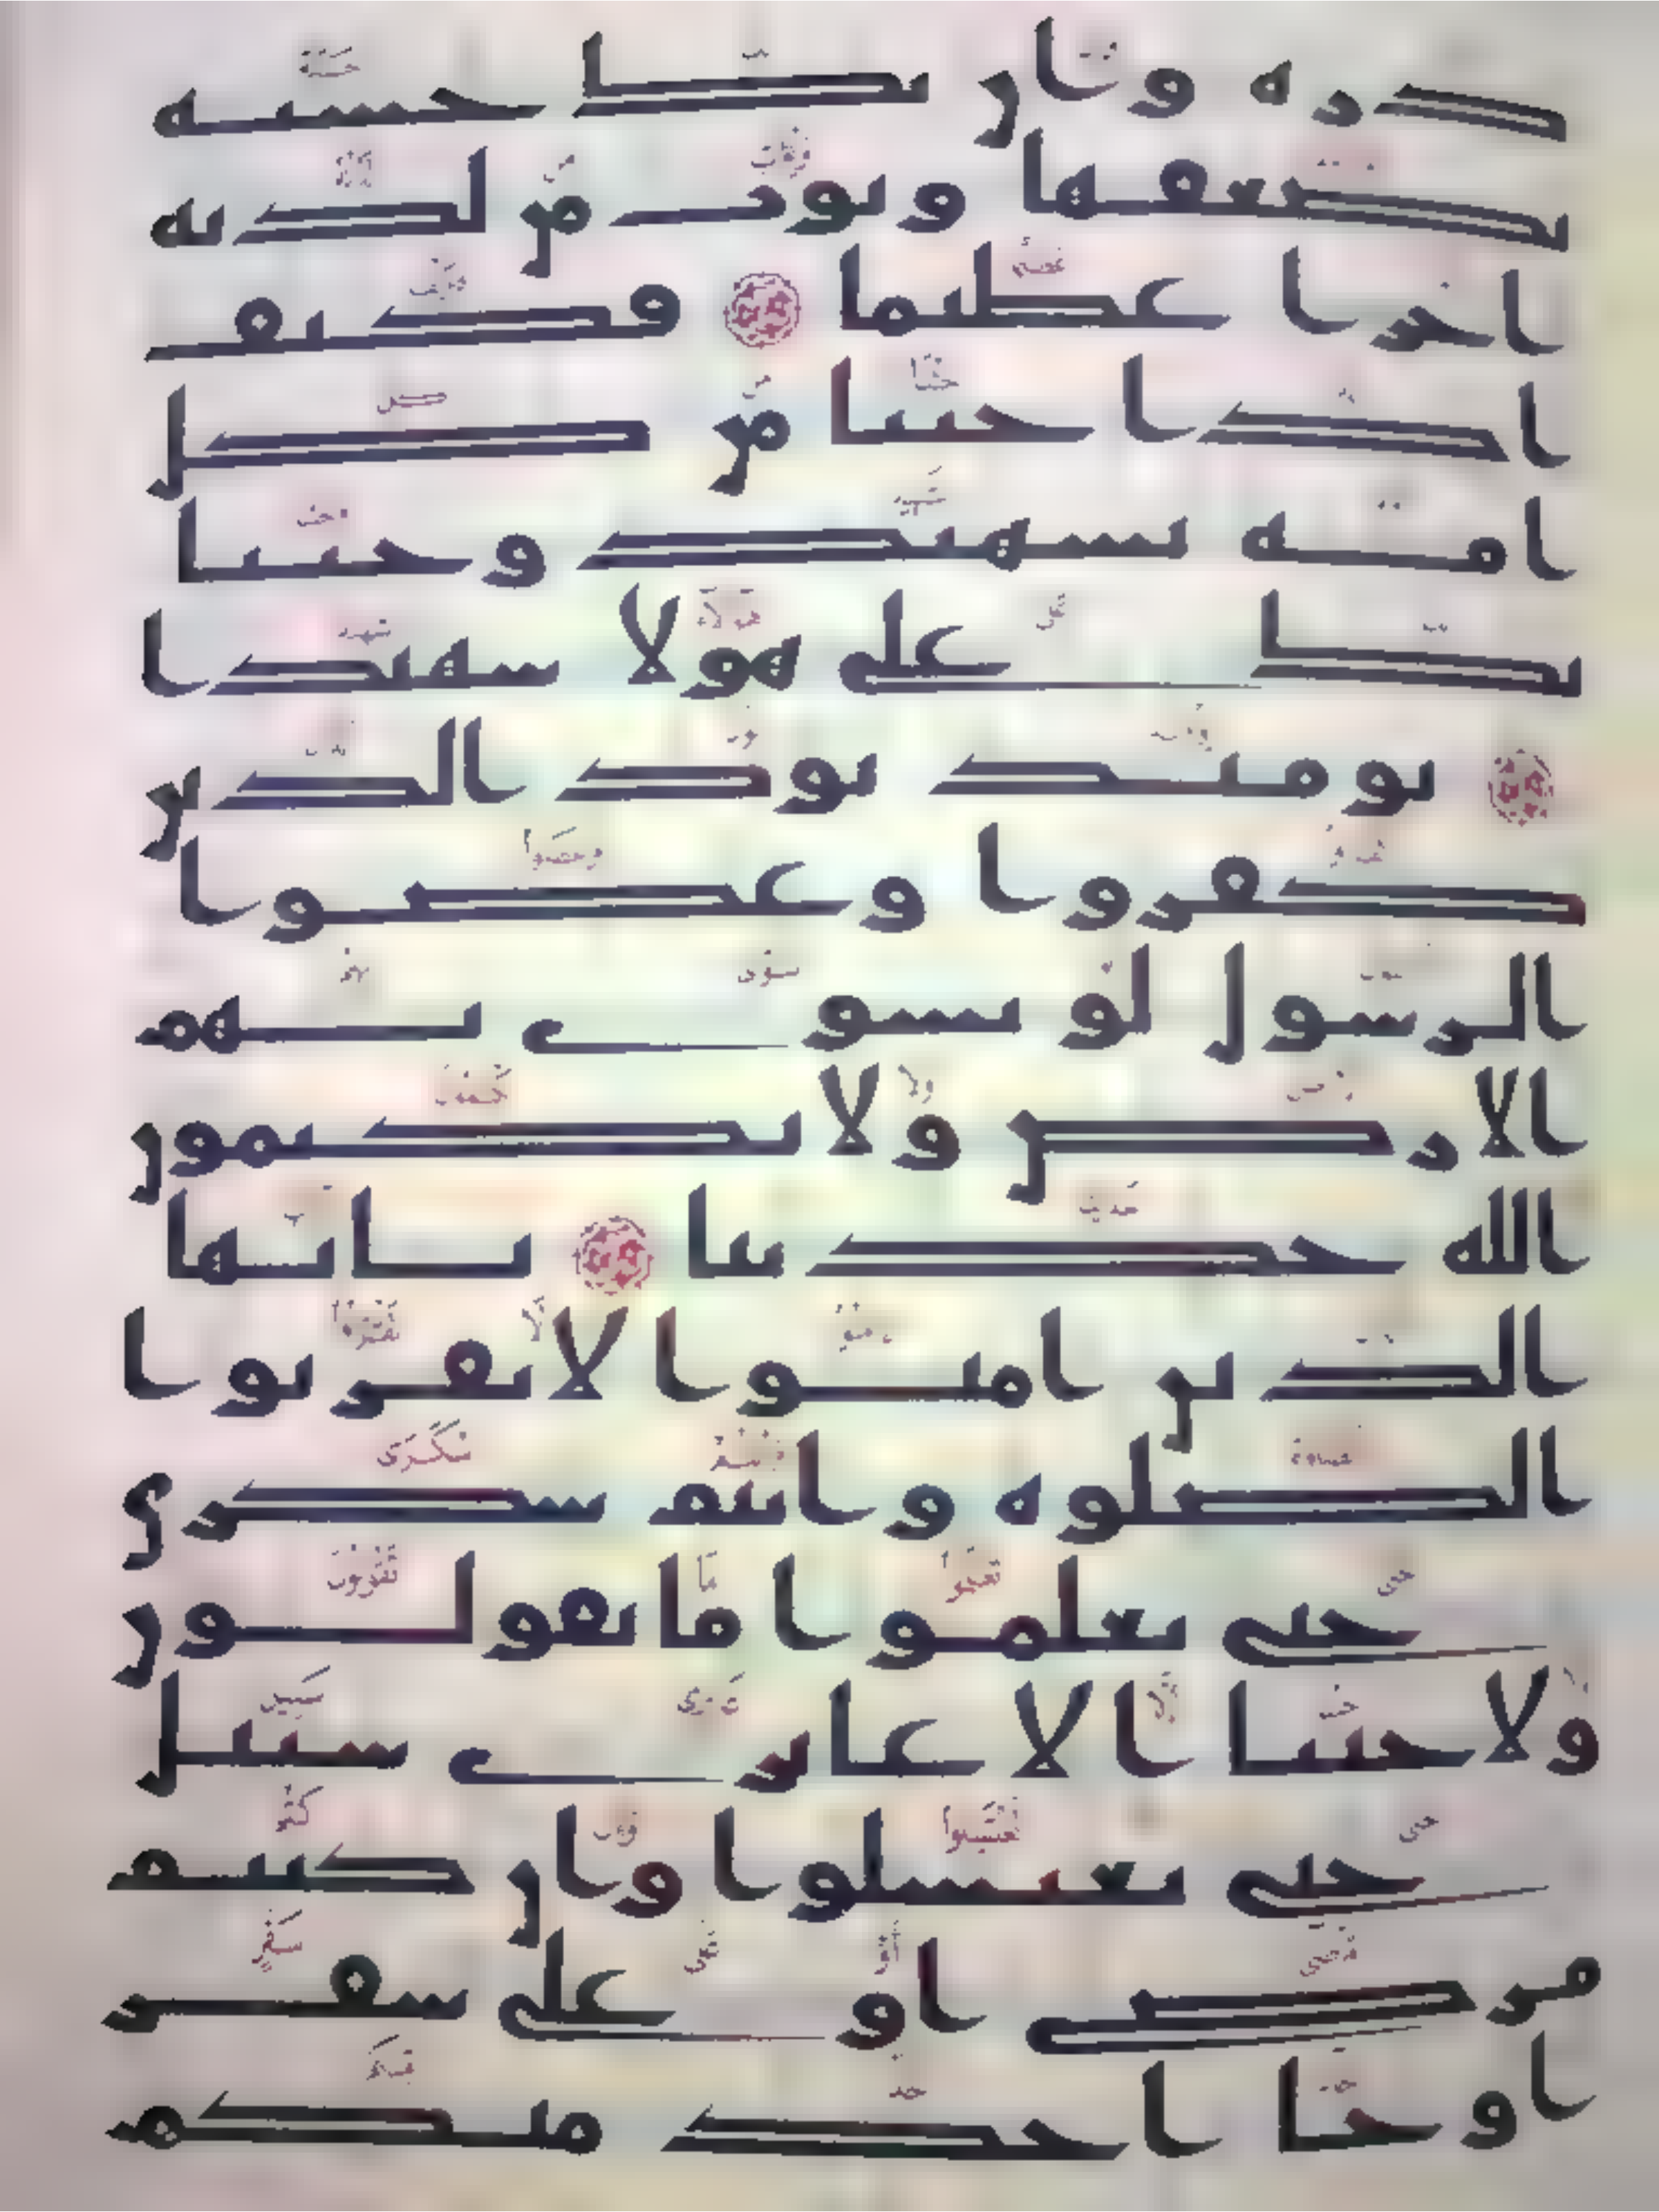 ذره وان تك حسنه
يضعفها ويوت من لدنه
اجرا عظيما فكيف
اذا جينا من كل
امه بشهيد وجينا
بك على هولا شهيدا
يوميذ يود الذين
كفروا وعصوا
الرسول لو تسوى بهم
الارض ولا يكتمون
الله حديثا يايها
الذين امنوا لا تقربوا
الصلوه وانتم سكرى
حتى تعلموا ما تقولون
ولا جنبا الا عابرى سبيل
حتى تغتسلوا وان كنتم
مرضى او على سفر
او جا احد منكم